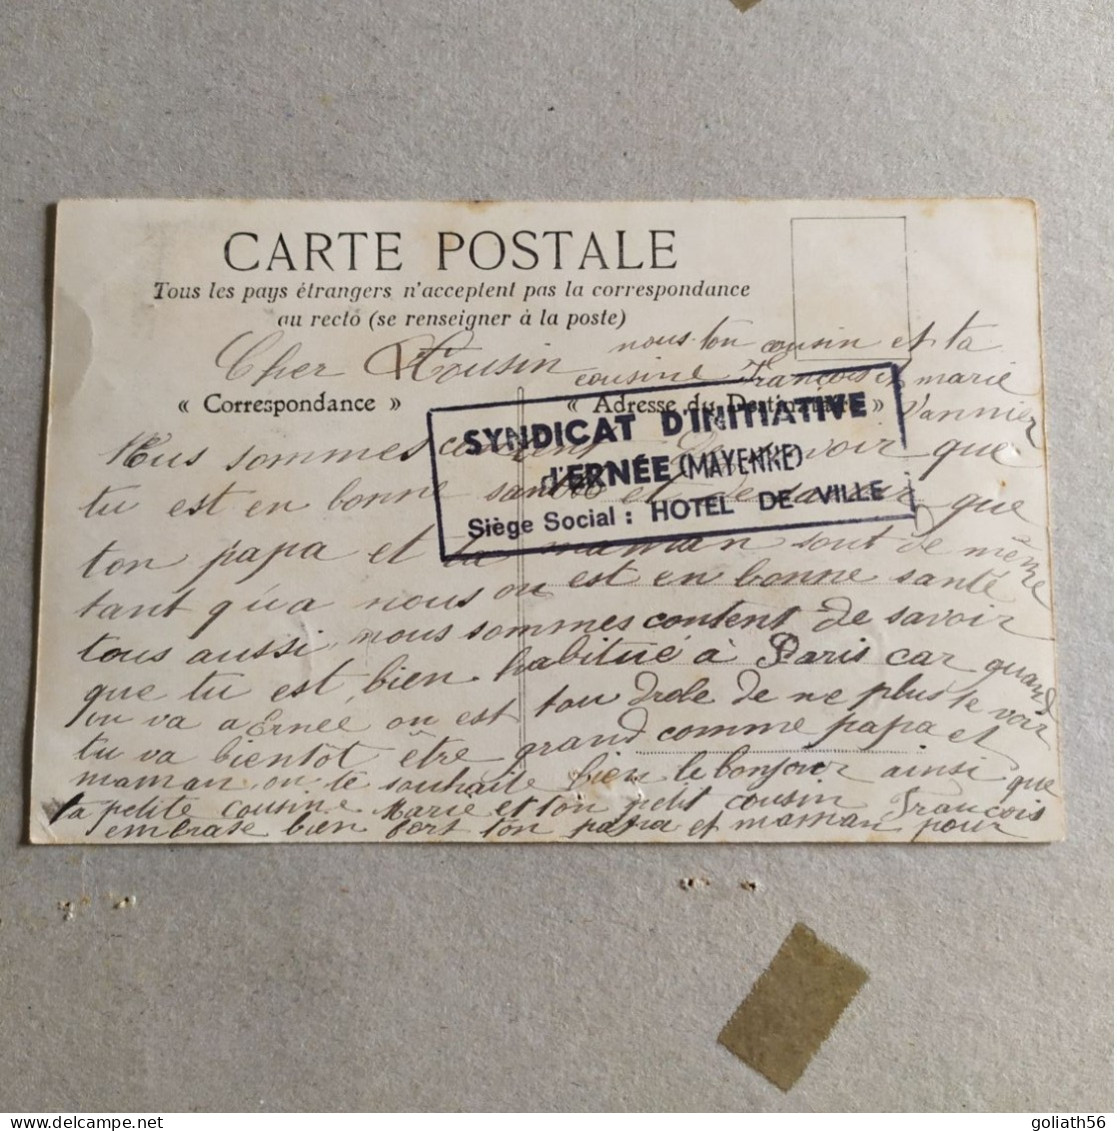 CARTE POSTALE
Tous les pays étrangers n'acceptent pas la correspondance
au recto (se renseigner à la poste)
Cher Cousin
« Correspondance »
« Adresse du Destinataire »
SYNDICAT D'INITIATIVE
d'ERNÉE (MAYENNE)
Siège Social : HOTEL DE VILLE
Nus sommes content De savoir que
tu est en bonne santé et de savoir que
ton papa et ta maman sont de même
tant qu'a nous on est en bonne santé
tous aussi nous sommes content de savoir
que tu est bien habitué à Paris car quand
on va a Ernée on est tou drole de ne plus te voir
tu va bientôt être grand comme papa et
maman on te souhaite bien le bonjour ainsi que
ta petite cousine Marie et ton petit cousin François
embrase bien fort ton papa et maman pour
nous ton cousin et ta
cousine François marie
Vannier
goliath56